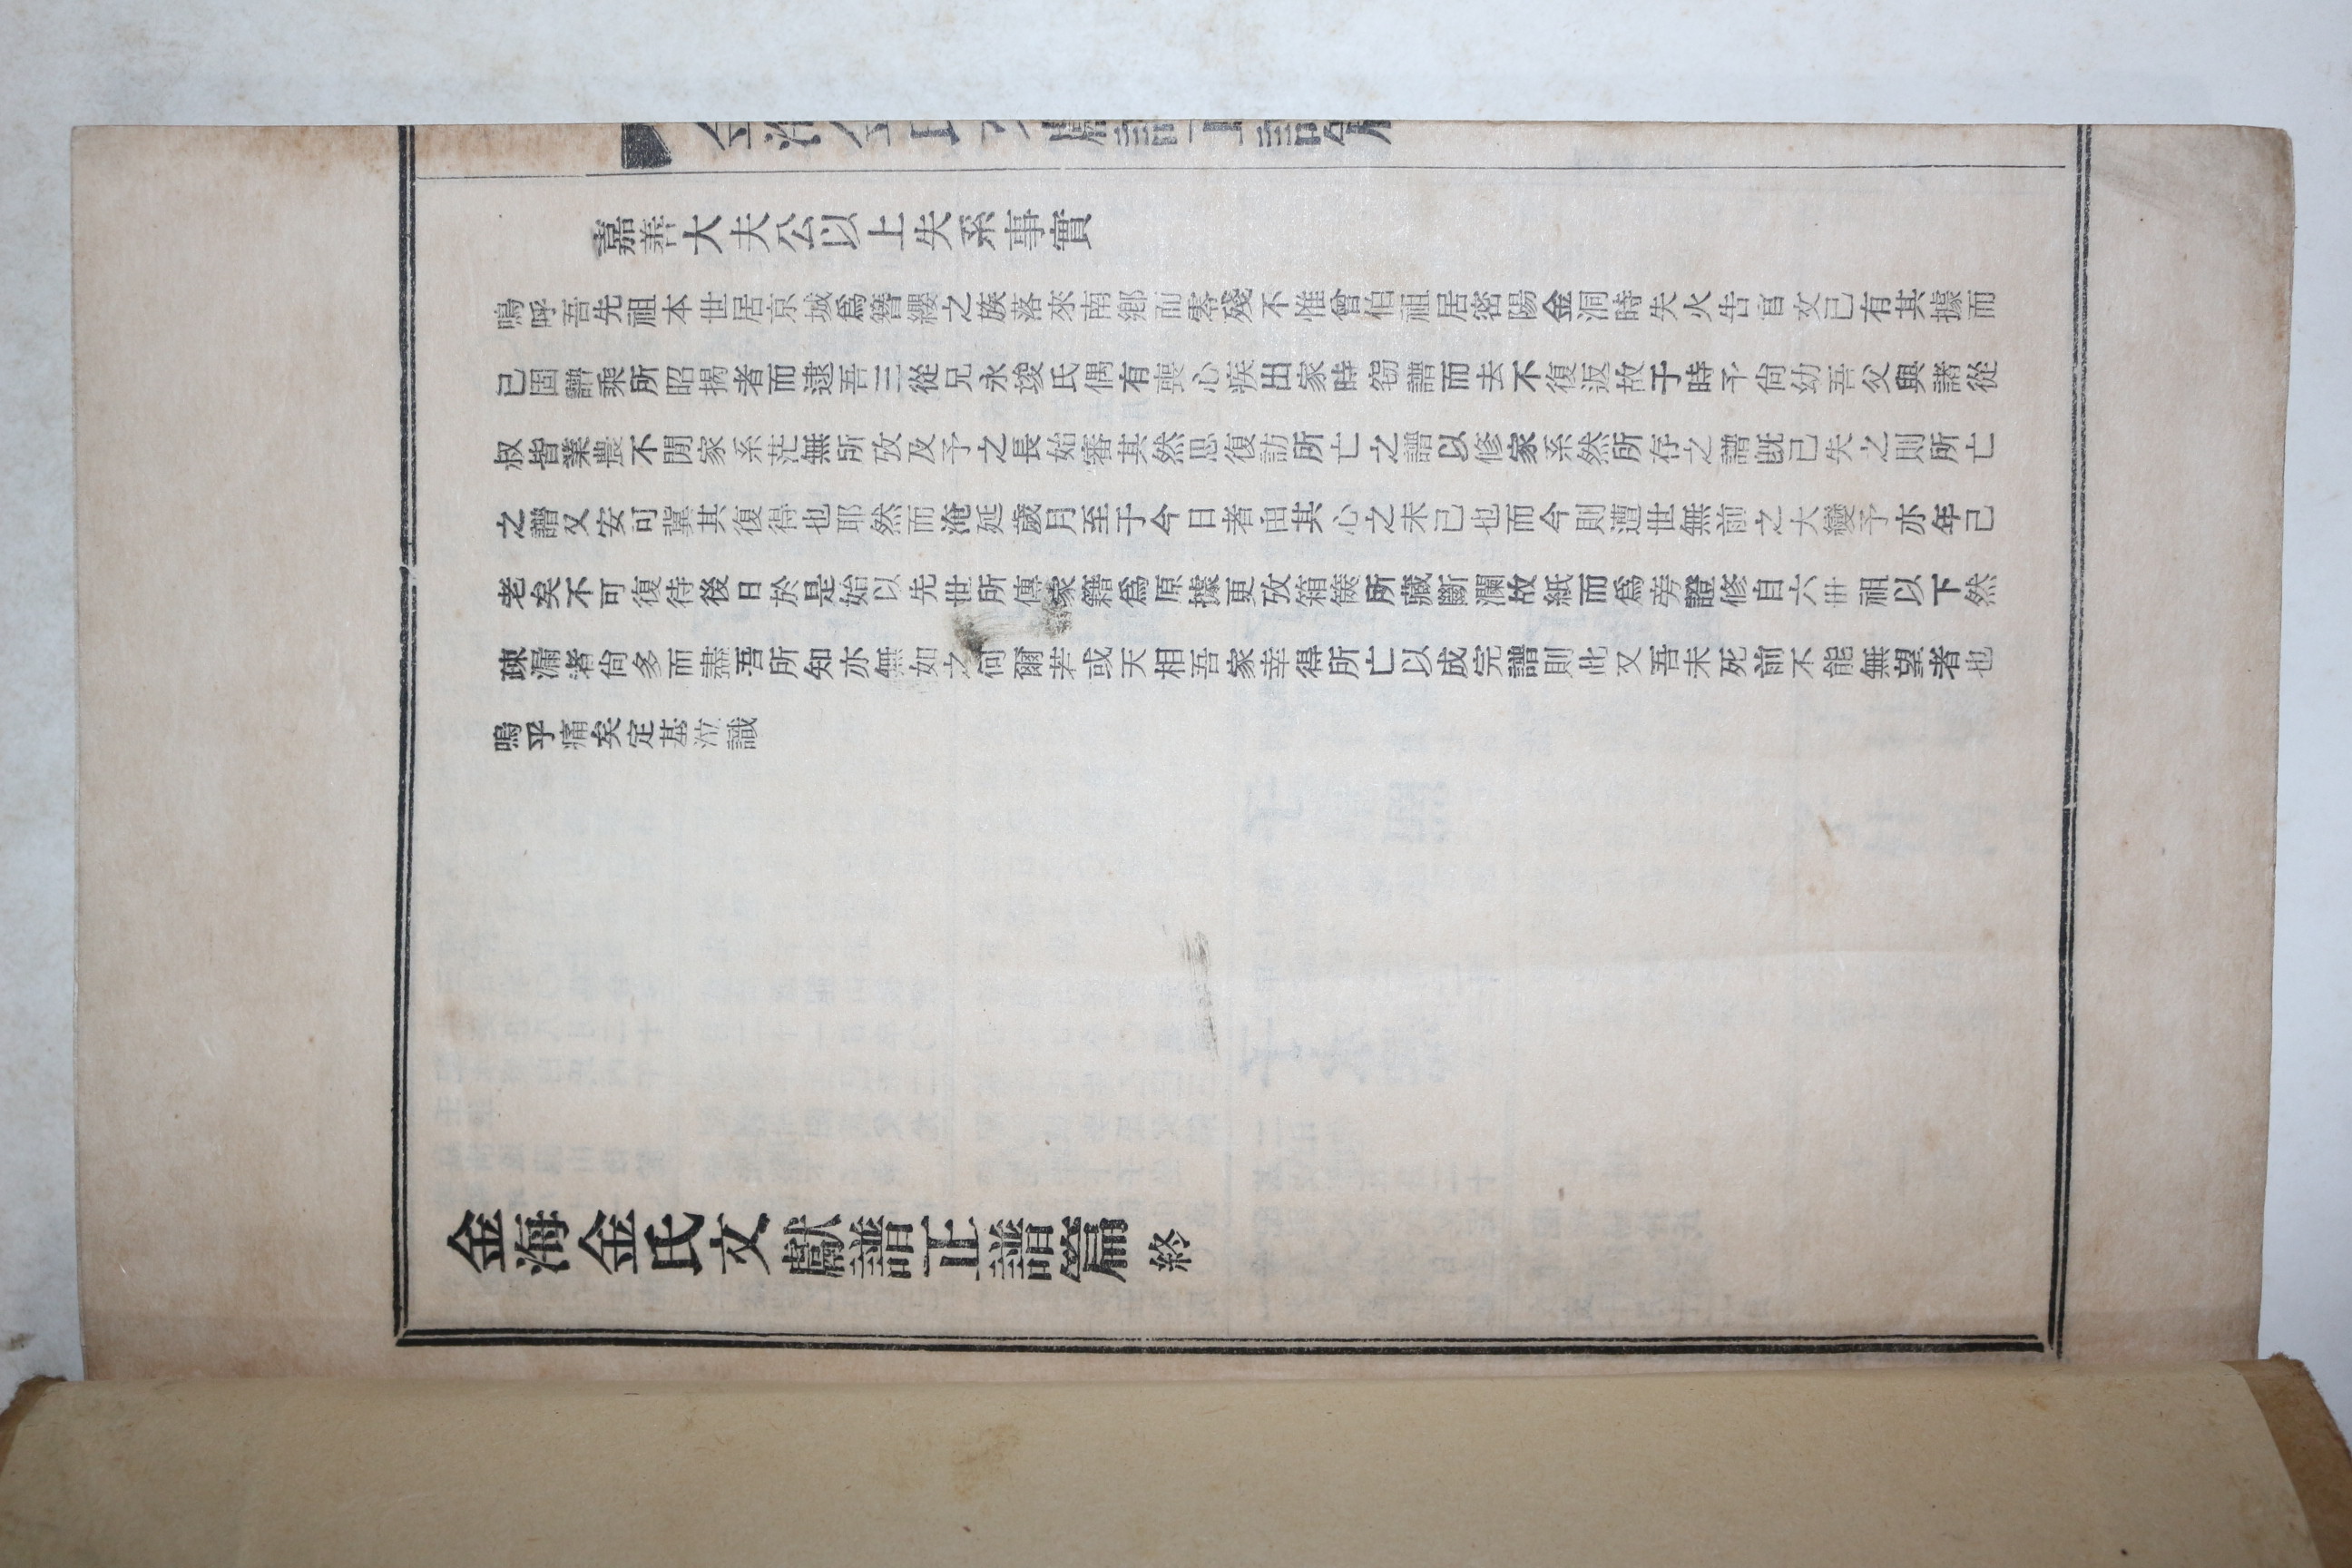 金海金氏文獻譜正譜篇
嘉善大夫公以上失系事實
嗚呼吾先祖本世居京城爲簪纓之族落來南鄕而零殘不惟曾伯祖居密陽金洞時失火告官文已有其據而
已固譜乘所昭揭者而逮吾三從兄永堎氏偶有喪心疾出家時窃譜而去不復返故于時予尙幼吾父與諸從
叔皆業農不閒家系茫無所攷及予之長始審其然思復訪所亡之譜以修家系然所存之譜旣已失之則所亡
之譜又安可冀其復得也耶然而淹延歲月至于今日者由其心之未已也而今則遭世無前之大變予亦年已
老矣不可復待後日於是始以先世所傳家籍爲原據更攷箱篋所藏斷爛故紙而爲旁證修自六世祖以下然
疎漏者尙多而盡吾所知亦無如之何爾若或天相吾家幸得所亡以成完譜則此又吾未死前不能無望者也
嗚乎痛矣定基泣識
金海金氏文獻譜正譜篇終